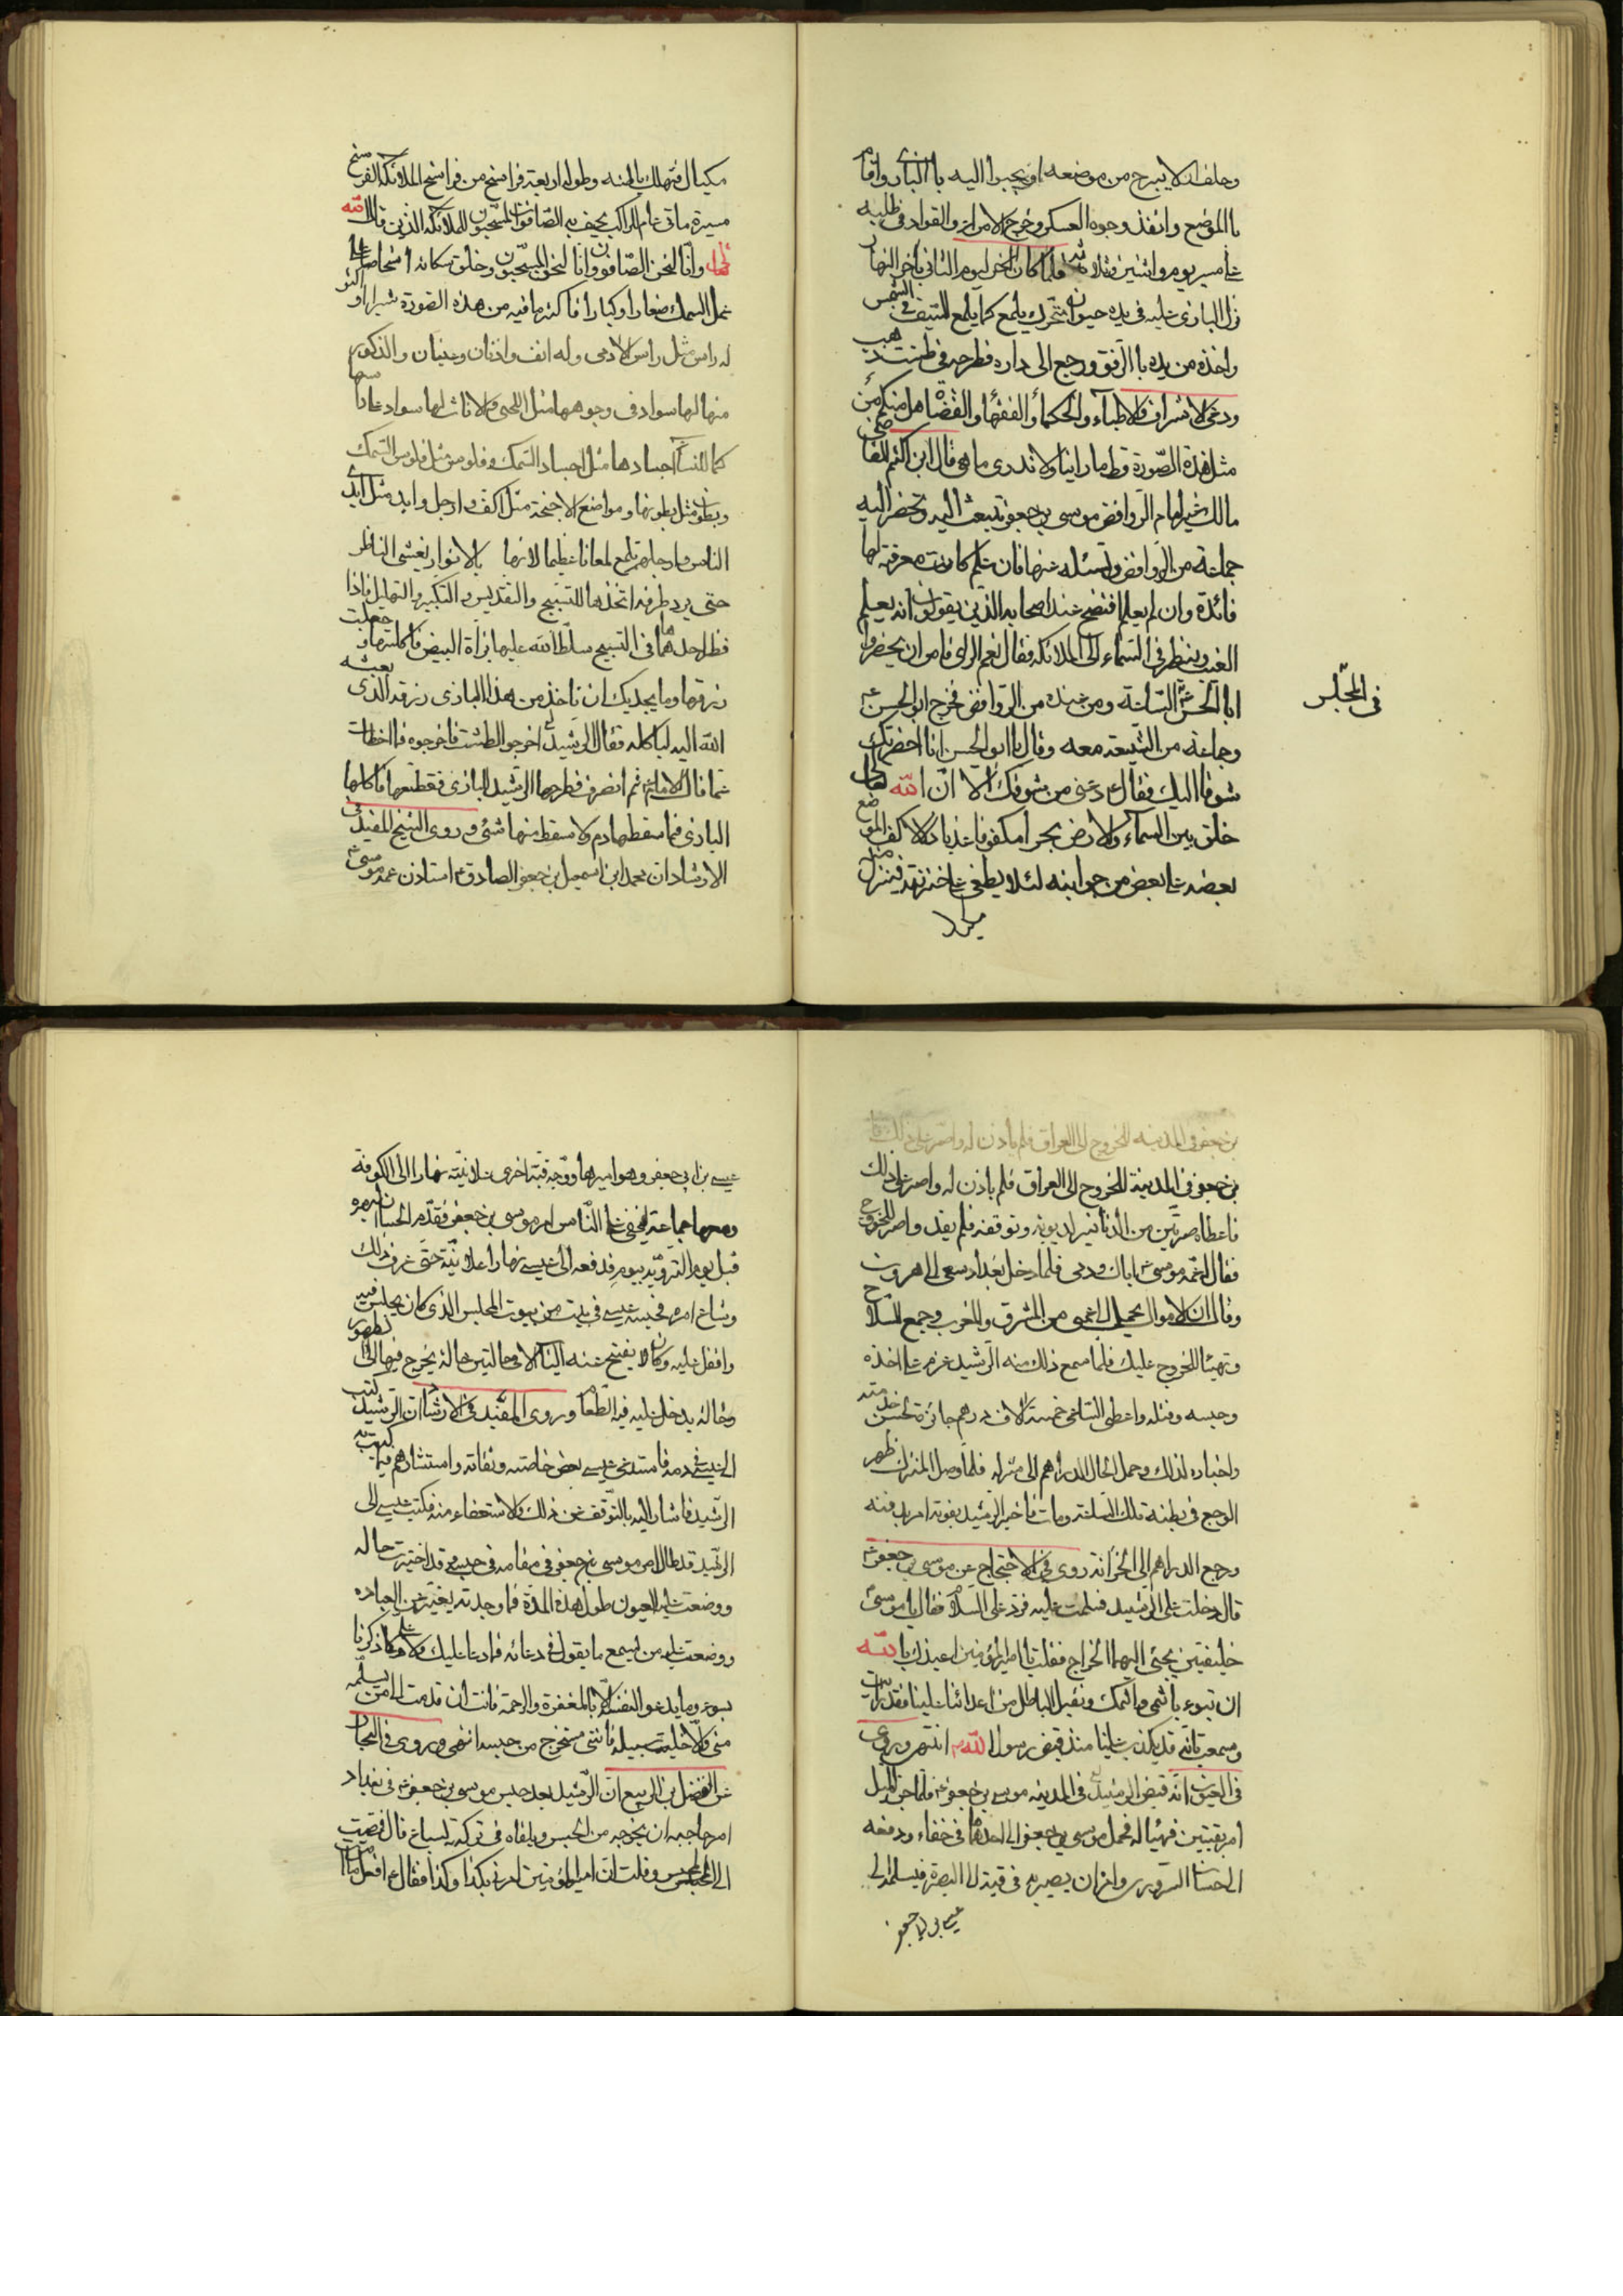 وحلف انه لا يبرح من موضعه او يجيبوا اليه باالبازى واقام
باالموضع وانفذ وجوه العسكر وخرج الامراء والقواد فى طلبه
على مسير يوم واثنين وثلاثه فلما كان اخر اليوم الثانى باخر النهار
نزل البازى عليه فى يده حيوان يتحرك يلمع كما يلمع السيف فى الشمس
واخذه من يده باالرفق ورجع الى داره فطرحه فى طشت ذهب
ودعى الاشراف والاطباء والحكماء والفقهاء والقضاة هل منكم من
مثل هذه الصورة قط ما راينا ولا ندرى ما هى قال ابن اكثم القاضى
مالك غير امام الروافض موسى بن جعفر تبعث اليه وتحضر اليه
جماعة من الروافض وتسئله عنها فان علم كان معرفته لها
فائدة وان لم يعلم افتضح عند اصحابه الذين يقولون انه يعلم
الغيب وينظر فى السماء الى الملائكه فقال نعم الراى فامر ان يحضروا
ابا الحسن ع الساعة ومن عنده من الروافض فخرج ابو الحسن ع
فى المجلس
وجماعة من الشيعة معه وقال يا ابو الحسن انا احضرتك
شوقا اليك فقال ع دعنى من شوقك الا ان الله تعالى
خلق بين السماء والارض بحرا مكفوفا عذبا زلالا كف الموج
بعضه على بعض من جوانبه لئلا يطغى على خزنته فينزل منه
مكيال
مكيال فتهلك بالمنه وطوله اربعة فراسخ من فراسخ الملائكه الفرسخ
مسيرة ماتى عام للراكب يحيف به الصافون المسبحون للملائكه الذين قال الله
تعالى وانا لنحن الصافون وانا لنحن المسبحون وخلق سكانه اشخاصا على
عمل السمك صغارا وكبارا فاكثر ما فيه من هذه الصورة شبرا او اكثر
له راس مثل راس الادمى وله انف واذنان وعينان والذكور
منها لها سواد فى وجوهها مثل اللحى والاناث لها سواد على راسها
كما للنساء اجسادها مثل اجساد السمك وفلوس مثل فلوس السمك
وبطون مثل بطونها ومواضع الاجنحة مثل اكف وارجل وايد مثل ايدى
الناس وارجلهم تلمع لمعانا عظيما لانها بالانوار يغشى الناظر
حتى يرد طرفه اتخذها للتسبيح والتقديس والتكبير والتهليل فاذا
قط احدها فى التسبيح سلط الله عليها بزاة البيض فاكلتها وجعلت
رزقها وما يجديك ان تاخذ من هذا البازى رزقه الذى بعثه
الله اليه لياكله فقال الرشيد لع اخرجوا الطشت فاخرجوه فما اخطات
مما قال الامام ع ثم انصرف فطرحها الرشيد للبازى فقطعها فاكلها
البازى فما سقط لها دم ولا سقط منها شئ وروى الشيخ المفيد فى
الارشاد ان محمد ابن اسمعيل بن جعفر الصادق ع استاذن عمه موسى ع
بن جعفر فى المدينه للخروج الى العراق فلم ياذن له واصر على ذلك
بن جعفر فى المدينة للخروج الى العراق فلم ياذن له واصر على ذلك
فاعطاه صرتين من الدنانير لديونه وتوقفه فلم يفد واصر للخروج
فقال عمه موسى ع اياك ودمى فلما دخل بغداد سعى الى هرون
وقال ان الاموال يحمل الى عمى من المشرق والمغرب وجمع السلاح
وتهيئا للخروج عليك فلما سمع ذلك منه الرشيد عزم على اخذه
وحبسه وقتله واعطى الساعى خمسة الاف درهم جائزة لحسن خدمته
واخباره لذلك وحمل الحال الدراهم الى منزله فلما وصل المنزل ظهر
الوجع فى بطنه تلك الساعة ومات فاخبر الرشيد بفوته امر بدفنه
ورجع الدراهم الى الخزانة روى فى الاحتجاج عن موسى بن جعفر ع
قال دخلت على الرشيد فسلمت عليه فرد على السلام فقال يا موسى
خليفتين يجئ اليهما الخراج فقلت يا امير المؤمنين اعيذك بالله
ان تبوء باثمى واثمك وتقبل الباطل من اعدائنا علينا فقد رايت
وسمعت بانه قد يكذب علينا منذ قبض رسول الله ص انتهى وروى
فى العيون انه قبض الرشيد فى المدينه موسى بن جعفر ع فلما جن الليل
امر بقبتين فهيئا له فحمل موسى بن جعفر الى احدهما فى خفاء ودفعه
الى حسان السروى وامره ان يصير به فى قبة الى البصرة فيسلمه الى
عيسى بن ابى جعفر
عيسى بن ابى جعفر وهو اميرها ووجه قبة اخرى علانية نهارا الى الكوفة
ومعها جماعة ليخفى على الناس امر موسى بن جعفر فقدم الحسان البصره
قبل يوم التروية بيوم فدفعه الى عيسى نهارا علانية حتى عرف ذلك
وشاع امره فحبسه عيسى فى بيت من بيوت المجلس الذى كان يجلس فيه
واقفل عليه وكان لا يفتح عنه الباب الا فى حالتين حالة يخرج فيها الى الطهور
وحالة يدخل عليه فيه الطعام وروى المفيد فى الارشاد ان الرشيد كتب
الى عيسى فى دمه فاستدعى عيسى بعض خاصته وثقاته واستشارهم فيما كتب به
الرشيد فاشار اليه بالتوقف عن ذلك والاستعفاء منه فكتب عيسى الى
الرشيد قد طال امر موسى بن جعفر فى مقامه فى حبسى وقد اختبرت حاله
ووضعت عليه العيون طول هذه المدة فما وجدته يفتر عن العباده
ووضعت عليه من يسمع ما يقول فى دعائه فما دعا عليك ولا على وما ذكرنا
بسوء وما يدعو لنفسه الا بالمغفرة والرحمة فانت ان قدمت الى من يسلمه
منى والا خليت سبيله فاننى متحرج من حبسه انتهى وروى فى البحار
عن الفضل بن الربيع ان الرشيد بعد حبس موسى بن جعفر ع فى بغداد
امر حاجبه ان يخرجه من الحبس ويلقاه فى تركة السباع قال فمضيت
الى المجلس وقلت ان امير المؤمنين امرنى بكذا وكذا فقال ع افعل ما